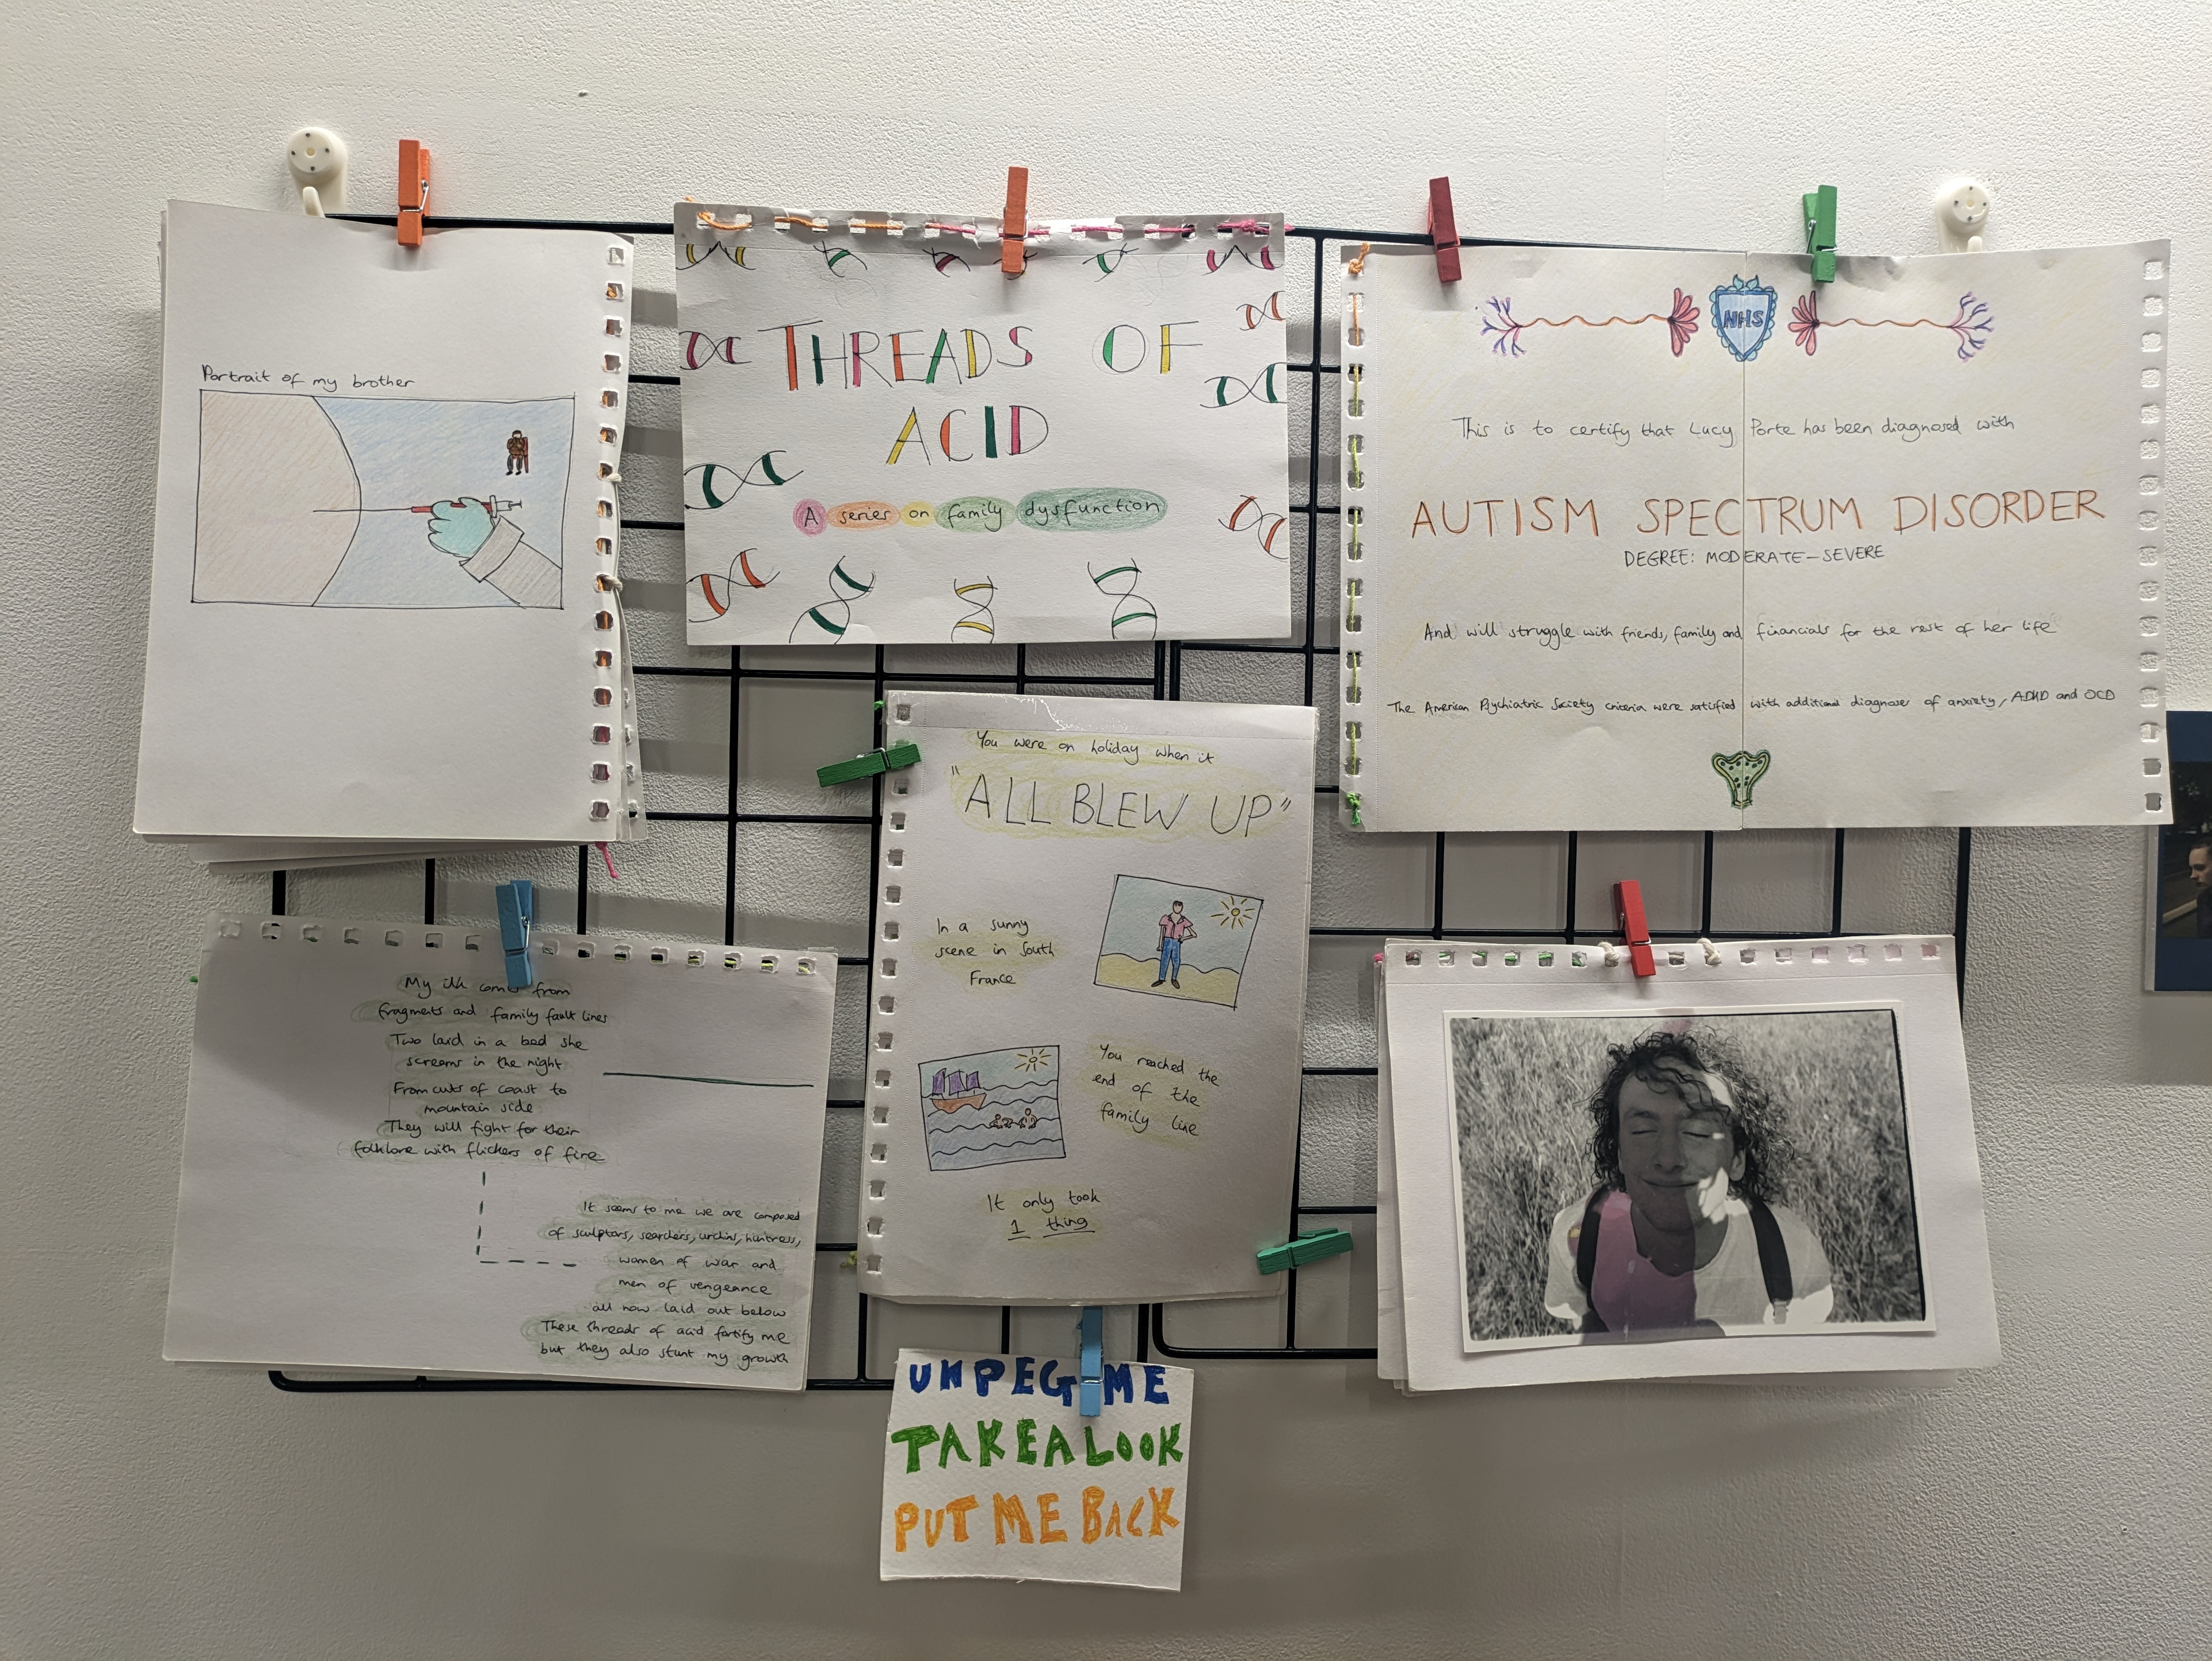 Portrait of my brother
THREADS OF
ACID
A series on family dysfunction
NHS
This is to certify that Lucy Porte has been diagnosed with
AUTISM SPECTRUM DISORDER
DEGREE: MODERATE-SEVERE
And will struggle with friends, family and financials for the rest of her life
The American Psychiatric Society criteria were satisfied with additional diagnoses of anxiety, ADHD and OCD
You were on holiday when it
"ALL BLEW UP"
In a sunny
scene in South
France
You reached the
end of the
family line
It only took
1 thing
My ilk comes from
fragments and family fault lines
Two laid in a bed she
screams in the night
From cuts of coast to
mountain side
They will fight for their
folklore with flickers of fire
It seems to me we are composed
of sculptors, searchers, urchins, huntress,
women of war and
men of vengeance
all now laid out below
These threads of acid fortify me
but they also stunt my growth
UNPEG ME
TAKE A LOOK
PUT ME BACK